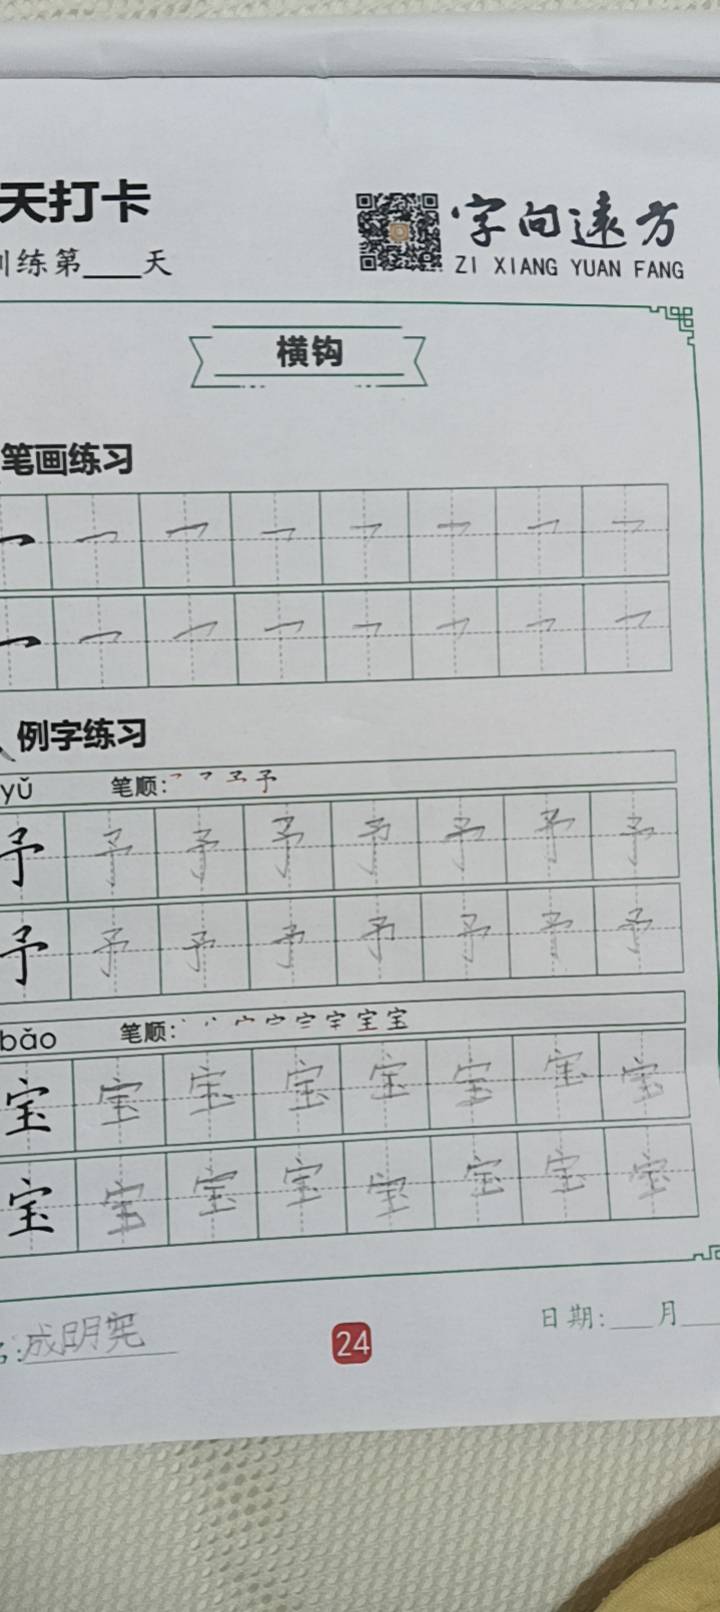 天打卡
训练第____天
字向远方
ZI XIANG YUAN FANG
横钩
笔画练习
㇖ ㇖ ㇖ ㇖ ㇖ ㇖ ㇖ ㇖
㇖ ㇖ ㇖ ㇖ ㇖ ㇖ ㇖ ㇖
例字练习
yǔ 笔顺: 予
予 予 予 予 予 予 予 予
予 予 予 予 予 予 予 予
bǎo 笔顺: 宝
宝 宝 宝 宝 宝 宝 宝 宝
宝 宝 宝 宝 宝 宝 宝 宝
名:成明宪
24
日期:___月___